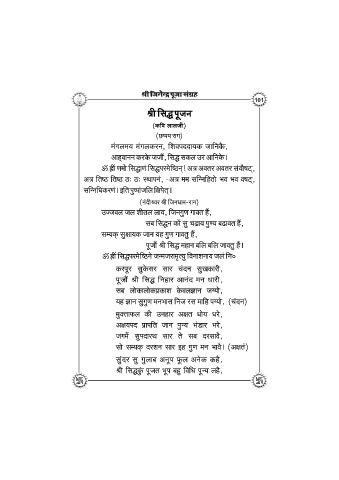 श्री जिनेन्द्र पूजा संग्रह
101
श्री सिद्ध पूजन
(कवि लालजी)
(छप्पय राग)
मंगलमय मंगलकरन, शिवपददायक जानिकै,
आह्वानन करके जजौं, सिद्ध सकल उर आनिके।
ॐ ह्रीं णमो सिद्धाणं सिद्धपरमेष्ठिन्! अत्र अवतर अवतर संवौषट्,
अत्र तिष्ठ तिष्ठ ठः ठः स्थापनं, -अत्र मम सन्निहितो भव भव वषट्,
सन्निधिकरणं। इति पुष्पांजलि क्षिपेत्।
(नंदीश्वर श्री जिनधाम-राग)
उज्जवल जल शीतल लाय, जिनगुण गावत हैं,
सब सिद्धन कों सु चढाय पुण्य बढावत हैं,
सम्यक् सुक्षायक जान यह गुण गावतु हैं,
पूजौं श्री सिद्ध महान बलि बलि जावतु हैं।
ॐ ह्रीं सिद्धपरमेष्ठिने जन्मजरामृत्यु विनाशनाय जलं नि०
करपूर सुकेसर सार चंदन सुखकारी,
पूजौं श्री सिद्ध निहार आनंद मन धारी,
सब लोकालोकप्रकाश केवलज्ञान जग्यो,
यह ज्ञान सुगुण मनभास निज रस माहि पग्यो, (चंदन)
मुक्ताफल की उनहार अक्षत धोय धरे,
अक्षयपद प्रापति जान पुन्य भंडार भरे,
जगमें सुपदारथ सार ते सब दरसावे,
सो सम्यक् दरशन सार इह गुण मन भावे। (अक्षतं)
सुंदर सु गुलाब अनूप फूल अनेक कहै,
श्री सिद्धकुं पूजत भूप बहु विधि पुन्य लहै,